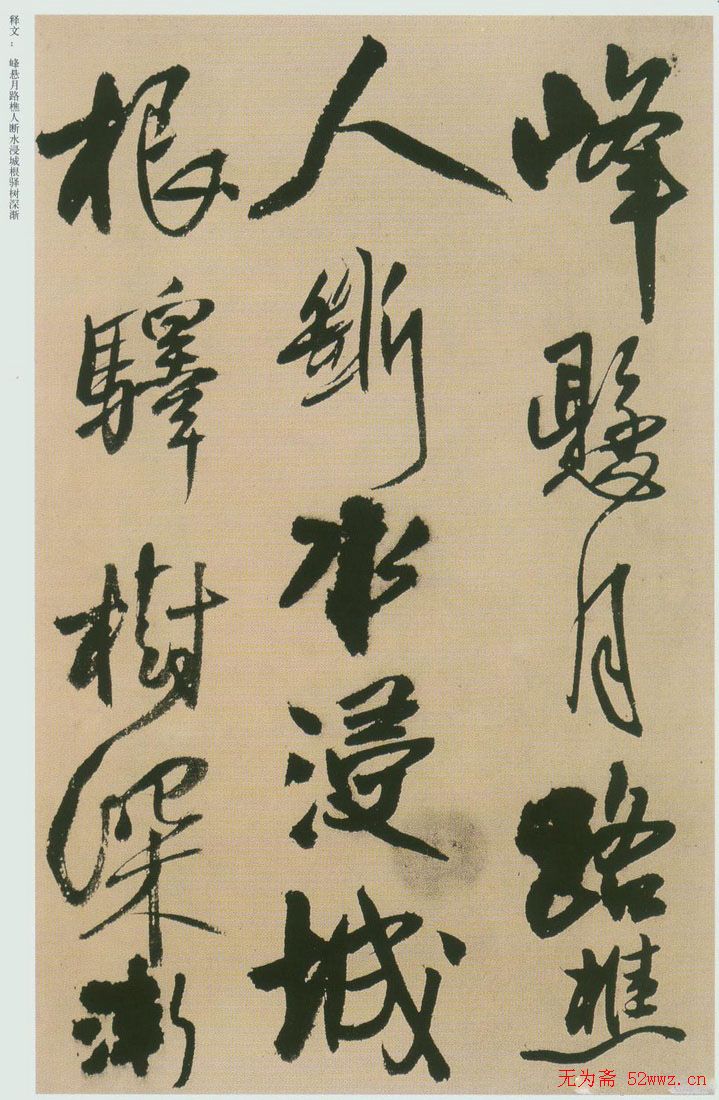 峰懸月路樵
人斷水浸城
根驛樹深漸
释文：峰悬月路樵人断水浸城根驿树深渐
无为斋 52wwz.cn